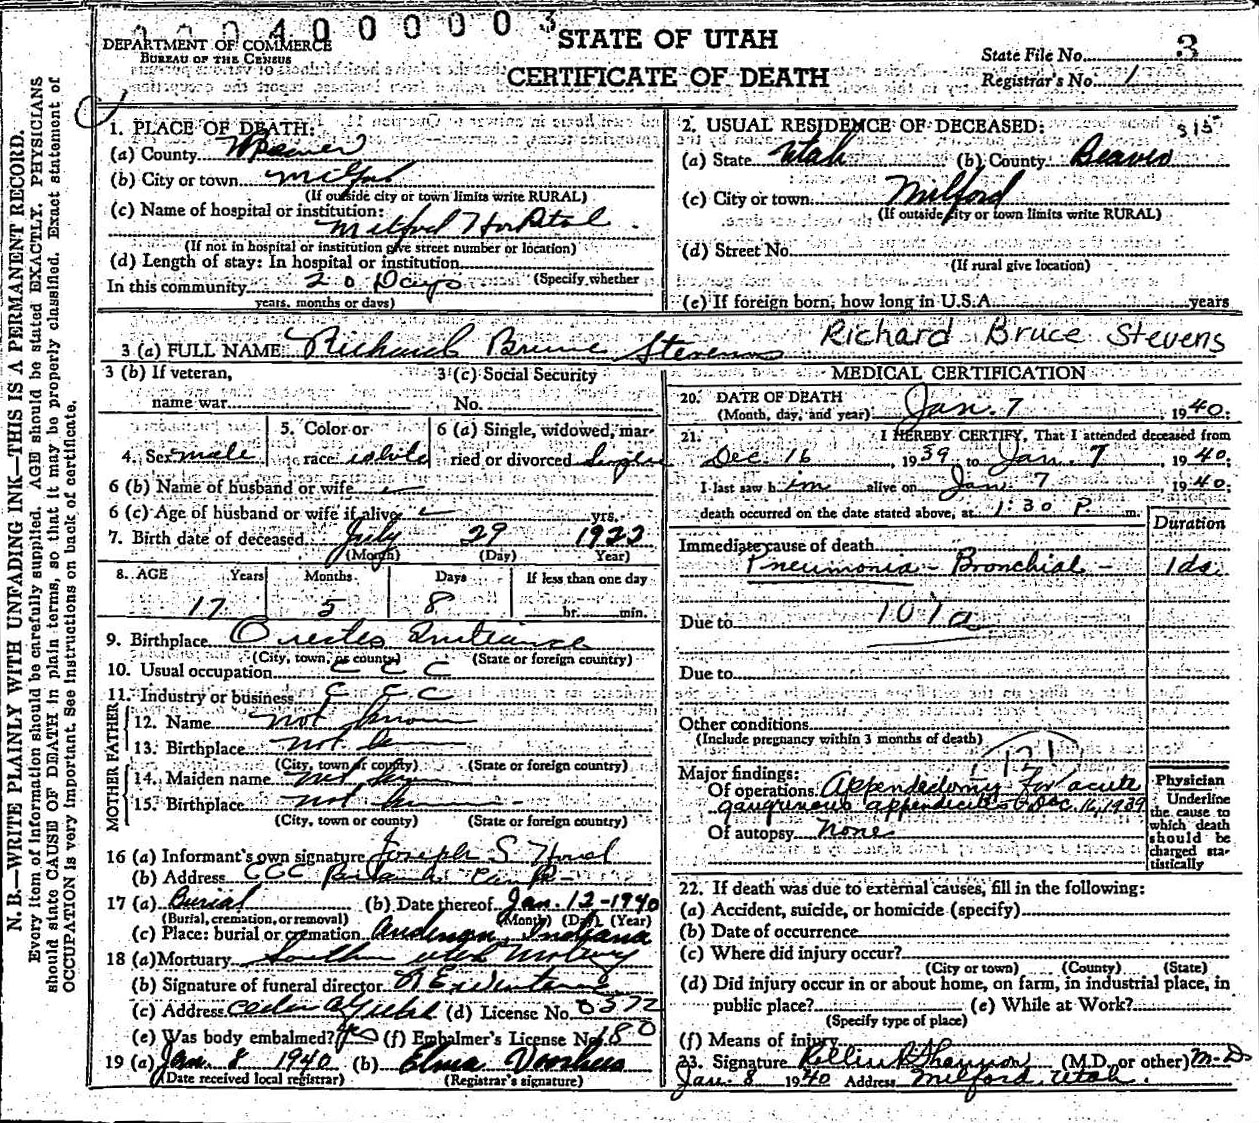 0 0 0 4 0 0 0 0 0 3
DEPARTMENT OF COMMERCE
BUREAU OF THE CENSUS
STATE OF UTAH
CERTIFICATE OF DEATH
State File No. 3
Registrar's No. 1
N. B.—WRITE PLAINLY WITH UNFADING INK—THIS IS A PERMANENT RECORD.
Every item of information should be carefully supplied. AGE should be stated EXACTLY. PHYSICIANS
should state CAUSE OF DEATH in plain terms, so that it may be properly classified. Exact statement of
OCCUPATION is very important. See instructions on back of certificate.
1. PLACE OF DEATH:
(a) County
(b) City or town Milford
(If outside city or town limits write RURAL)
(c) Name of hospital or institution:
Milford Hospital
(If not in hospital or institution give street number or location)
(d) Length of stay: In hospital or institution
(Specify whether
In this community 20 Days
years, months or days)
2. USUAL RESIDENCE OF DECEASED:
(a) State Utah (b) County Beaver
(c) City or town Milford
(If outside city or town limits write RURAL)
(d) Street No.
(If rural give location)
(e) If foreign born, how long in U.S.A. years
3 (a) FULL NAME Richard Bruce Stevens Richard Bruce Stevens
3 (b) If veteran,
name war
3 (c) Social Security
No.
4. Sex male
5. Color or
race white
6 (a) Single, widowed, mar-
ried or divorced Single
6 (b) Name of husband or wife
6 (c) Age of husband or wife if alive yrs.
7. Birth date of deceased July 29 1922
(Month) (Day) Year)
8. AGE Years Months Days If less than one day
17 5 8 hr. min.
9. Birthplace
(City, town, or county) (State or foreign country)
10. Usual occupation C C C
11. Industry or business C C C
FATHER
12. Name not known
13. Birthplace not
(City, town or county) (State or foreign country)
MOTHER
14. Maiden name not
15. Birthplace not
(City, town or county) (State or foreign country)
16 (a) Informant's own signature Joseph S
(b) Address CCC Camp
17 (a) Burial (b) Date thereof Jan. 12-1940
(Burial, cremation, or removal) (Month) (Day) (Year)
(c) Place: burial or cremation Anderson, Indiana
18 (a) Mortuary Southern Utah Mortuary
(b) Signature of funeral director
(c) Address Cedar (d) License No. 0372
(e) Was body embalmed? yes (f) Embalmer's License No. 180
19 (a) Jan. 8 1940 (b) Elma Voorhees
(Date received local registrar) (Registrar's signature)
MEDICAL CERTIFICATION
20. DATE OF DEATH
(Month, day, and year) Jan. 7, 1940.
21. I HEREBY CERTIFY, That I attended deceased from
Dec. 16, 1939, to Jan. 7, 1940.
I last saw him alive on Jan. 7, 1940.
death occurred on the date stated above, at 1:30 P. m.
Duration
Immediate cause of death
Pneumonia - Bronchial - 1 da.
Due to 107a
Due to
Other conditions
(Include pregnancy within 3 months of death)
121
Major findings:
Of operations Appendectomy for acute
gangrenous appendicitis Dec. 16, 1939
Of autopsy None
Physician
Underline
the cause to
which death
should be
charged sta-
tistically
22. If death was due to external causes, fill in the following:
(a) Accident, suicide, or homicide (specify)
(b) Date of occurrence
(c) Where did injury occur?
(City or town) (County) (State)
(d) Did injury occur in or about home, on farm, in industrial place, in
public place? (e) While at Work?
(Specify type of place)
(f) Means of injury
23. Signature (M.D. or other) M.D.
Jan. 8 1940 Address Milford, Utah.